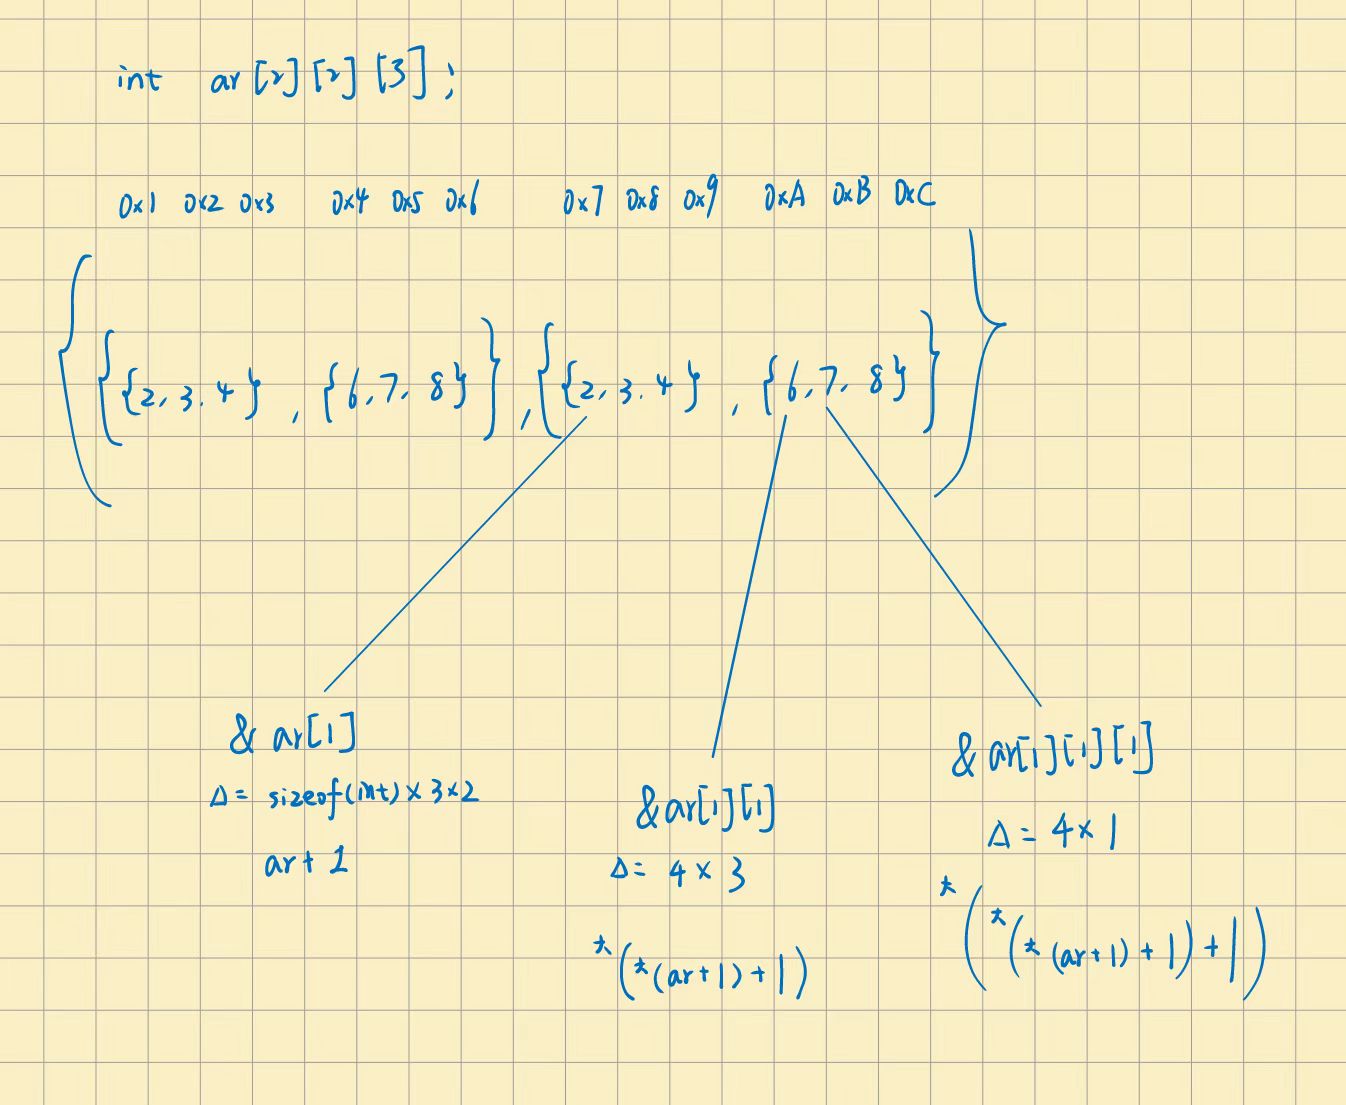 int ar[2][2][3];
0x1 0x2 0x3 0x4 0x5 0x6 0x7 0x8 0x9 0xA 0xB 0xC
{{{2,3.4},{6,7,8}},{{2,3.4},{6,7,8}}}
&ar[1]
Δ= sizeof(int)×3×2
ar+1
&ar[1][1]
Δ= 4×3
*(*(ar+1)+1)
&ar[1][1][1]
Δ=4×1
*(*(*(ar+1)+1)+1)